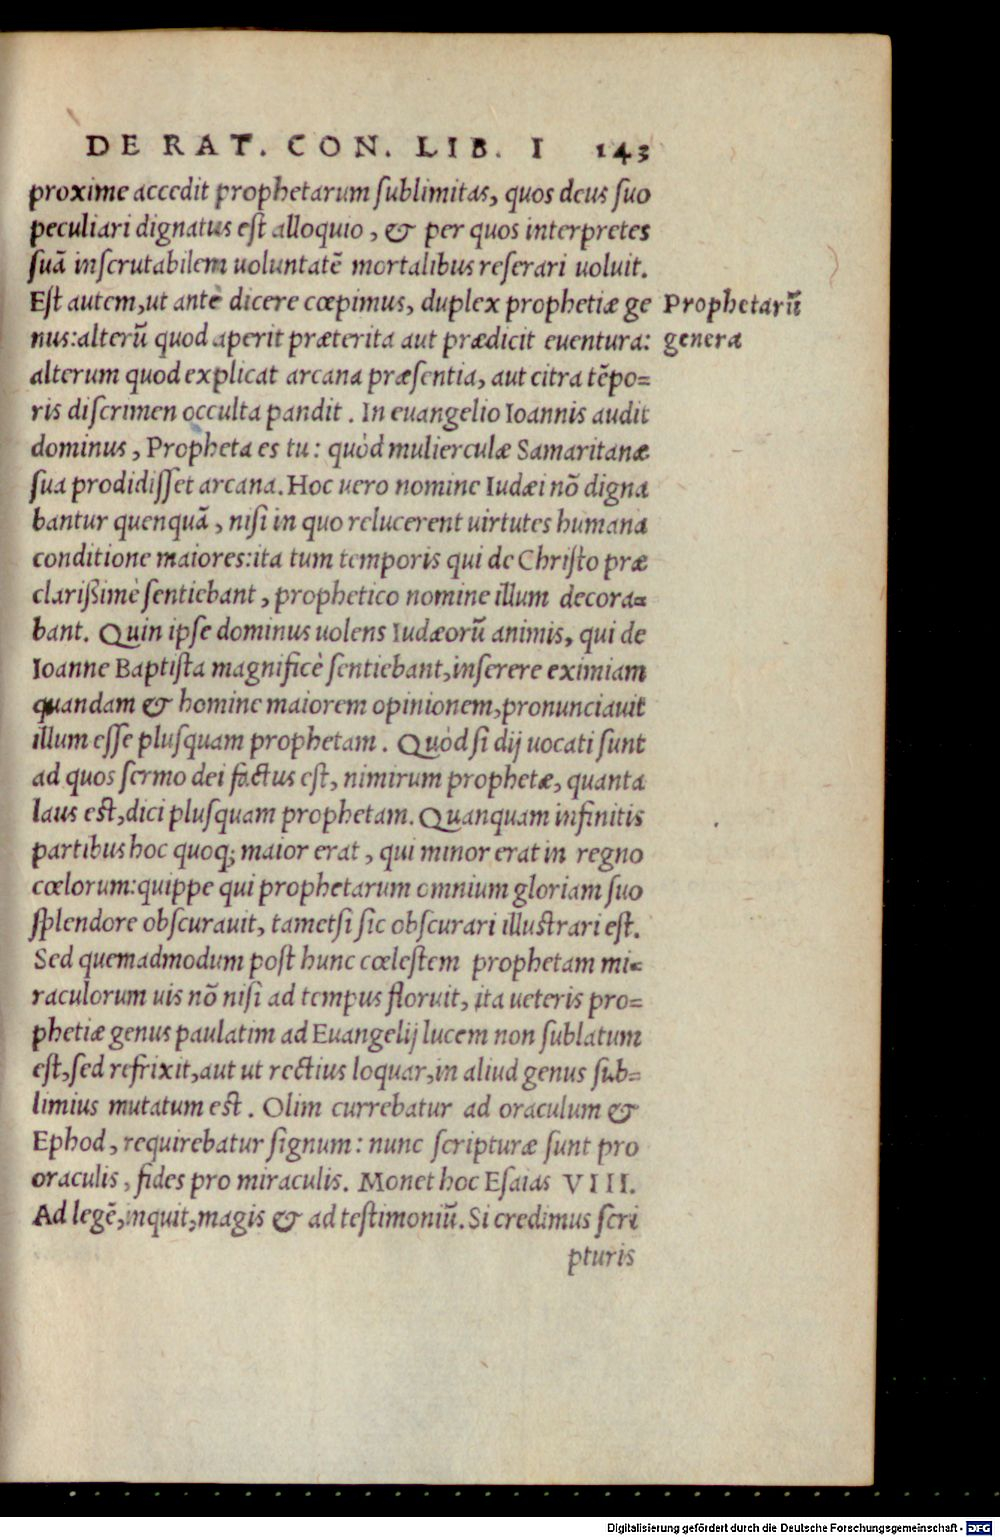 DE RAT. CON. LIB. I 143
proxime accedit prophetarum ſublimitas, quos deus ſuo
peculiari dignatus eſt alloquio, & per quos interpretes
ſuā inſcrutabilem uoluntatē mortalibus reſerari uoluit.
Eſt autem, ut antè dicere cœpimus, duplex prophetiæ ge
Prophetarū
nus: alterū quod aperit præterita aut prædicit euentura:
genera
alterum quod explicat arcana præſentia, aut citra tēpo=
ris diſcrimen occulta pandit. In euangelio Ioannis audit
dominus, Propheta es tu: quòd mulierculæ Samaritanæ
ſua prodidiſſet arcana. Hoc uero nomine Iudæi nō digna
bantur quenquā, niſi in quo relucerent uirtutes humana
conditione maiores: ita tum temporis qui de Chriſto præ
clarißimè ſentiebant, prophetico nomine illum decora=
bant. Quin ipſe dominus uolens Iudæorū animis, qui de
Ioanne Baptiſta magnificè ſentiebant, inſerere eximiam
quandam & homine maiorem opinionem, pronunciauit
illum eſſe pluſquam prophetam. Quòd ſi dij uocati ſunt
ad quos ſermo dei factus eſt, nimirum prophetæ, quanta
laus eſt, dici pluſquam prophetam. Quanquam infinitis
partibus hoc quoq; maior erat, qui minor erat in regno
cœlorum: quippe qui prophetarum omnium gloriam ſuo
ſplendore obſcurauit, tametſi ſic obſcurari illuſtrari eſt.
Sed quemadmodum poſt hunc cœleſtem prophetam mi=
raculorum uis nō niſi ad tempus floruit, ita ueteris pro=
phetiæ genus paulatim ad Euangelij lucem non ſublatum
eſt, ſed refrixit, aut ut rectius loquar, in aliud genus ſub=
limius mutatum eſt. Olim currebatur ad oraculum &
Ephod, requirebatur ſignum: nunc ſcripturæ ſunt pro
oraculis, fides pro miraculis. Monet hoc Eſaias VIII.
Ad legē, inquit, magis & ad teſtimoniū. Si credimus ſcri
pturis
Digitalisierung gefördert durch die Deutsche Forschungsgemeinschaft - DFG